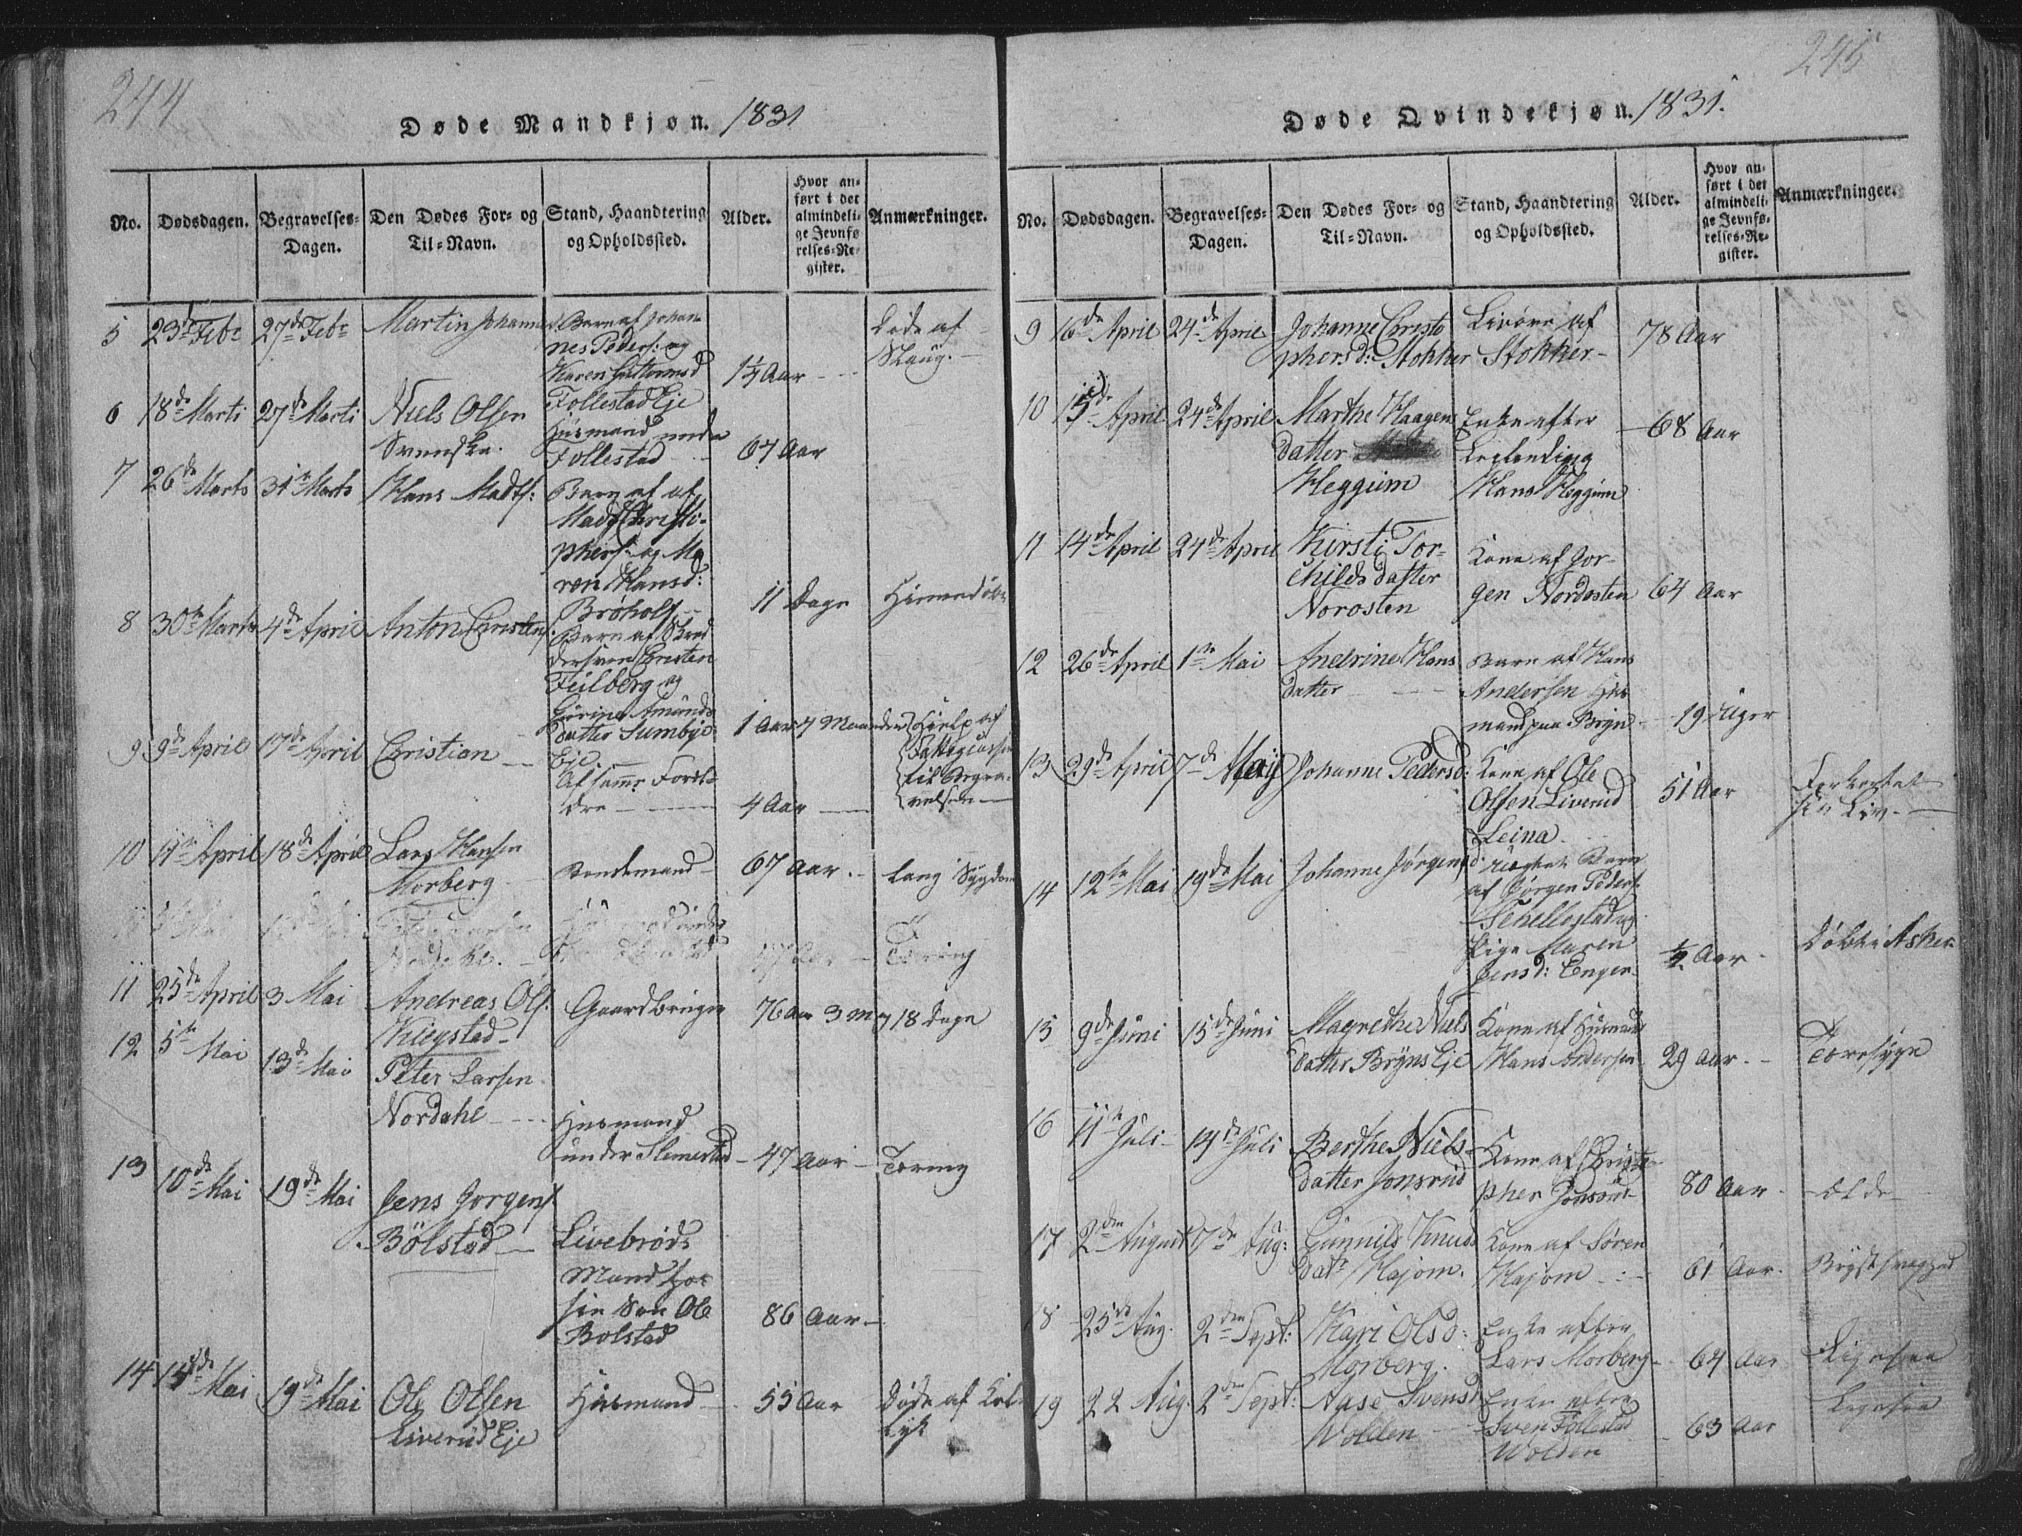 244
Døde Mandkjøn. 1831
No.
Dødsdagen.
Begravelses-
Dagen.
Den Dødes For- og
Til-Navn.
Stand, Haandtering
og Opholdssted.
Alder.
Hvor an-
ført i det
almindeli-
ge Jevnfø-
relses-Re-
gister.
Anmærkninger.
5 23de Febr 27de Febr Martin Johannes Barn af Johan
nes Peders: og
Karen Guttormsd
Follestad Eje
1¼ Aar
Døde af
6 18de Marts 27de Marts Niels Olsen
Svenske.
Huusmand under
Follestad
67 Aar
7 26de Marts 31te Marts Hans Mads:
Barn af af
Mads Christo-
phers: og Ma
ren Hansd:
Broholt
11 Dage Hiemmedøbt
8 30te Marts 4de April Anton Christens:
Barn af Skræd
dersven Christen
Feilberg og
Amunds
datter Sumbye
Eje
1 Aar 7 Maaneder
Hielp af
Fattigcassen
til Begra-
velsen
9 9de April 17de April Christian
Af samme Foræl
dre
4 Aar
10 11te April 18de April Lars Hansen
Morberg
Bondemand 67 Aar. Lang Sygdom
Tæring
11 25de April 3 Mai Andreas Ols:
Kiegstad
Gaardbruger 76 Aar 3 M 18 Dage
12 5te Mai 13de Mai Peter Larsen
Nordahl
Huusmand
under Slemestad 47 Aar Tæring
13 10de Mai 19de Mai Jens Jørgens:
Bölstad
Livebrøds
Mand hos
sin Søn Ole
Bolstad
86 Aar
14 14de Mai 19de Mai Ole Olsen
Liverud Eje
Huusmand 55 Aar Døde af

245
Døde Qvindekjøn. 1831.
No.
Dødsdagen.
Begravelses-
Dagen.
Den Dødes For- og
Til-Navn.
Stand, Haandtering
og Opholdssted.
Alder.
Hvor an-
ført i det
almindeli-
ge Jevnfø-
relses-Re-
gister.
Anmærkninger.
9 16de April 24de April Johanne Christo
phersd: Stokker
af
Stokker
78 Aar
10 15de April 24de April Marthe Haagens
datter
Heggum
Enke efter
Hans Heggum
68 Aar
11 14de April 24de April Kirsti Tor-
childsdatter
Norosten
Kone af Jør-
gen Nordosten
64 Aar
12 26de April 1te Mai Andrine Hans
datter
Barn af Hans
Andersen Huus
mand paa Bryn
19 Uger
13 29de April 7de Maij Johanne Pedersd:
Kone af Ole
Olsen Liverud
Leina
51 Aar
Forkortet
sin Liv.
14 12te Mai 19de Mai Johanne Jørgensd:
Uægte Barn
af Jørgen Peders:
Schellestad og
Pige Maren
Jensd: Engen
½ Aar Døbt i Asker
15 9de Juni 15de Juni Magrethe Niels
datter Bryns Eje
Kone af Huusmand
Hans Andersen
29 Aar. Tæresyge
16 11te Juli 19de Juli Berthe Niels-
datter Jonsrud
Kone af Christo-
pher Jonsrud
80 Aar. Ælde
17 2den August 7de Aug: Gunnild Knuds
Datr Hajom.
Kone af Søren
Hajom
61 Aar. Brystsvaghed
18 25de Aug. 2den Sept: Kari Olsd:
Morberg.
Enke efter
Lars Morberg
64 Aar
19 22 Aug. 2den Sept: Aase Svensd
Wolden
Enke efter
Sven Follestad
Wolden
63 Aar